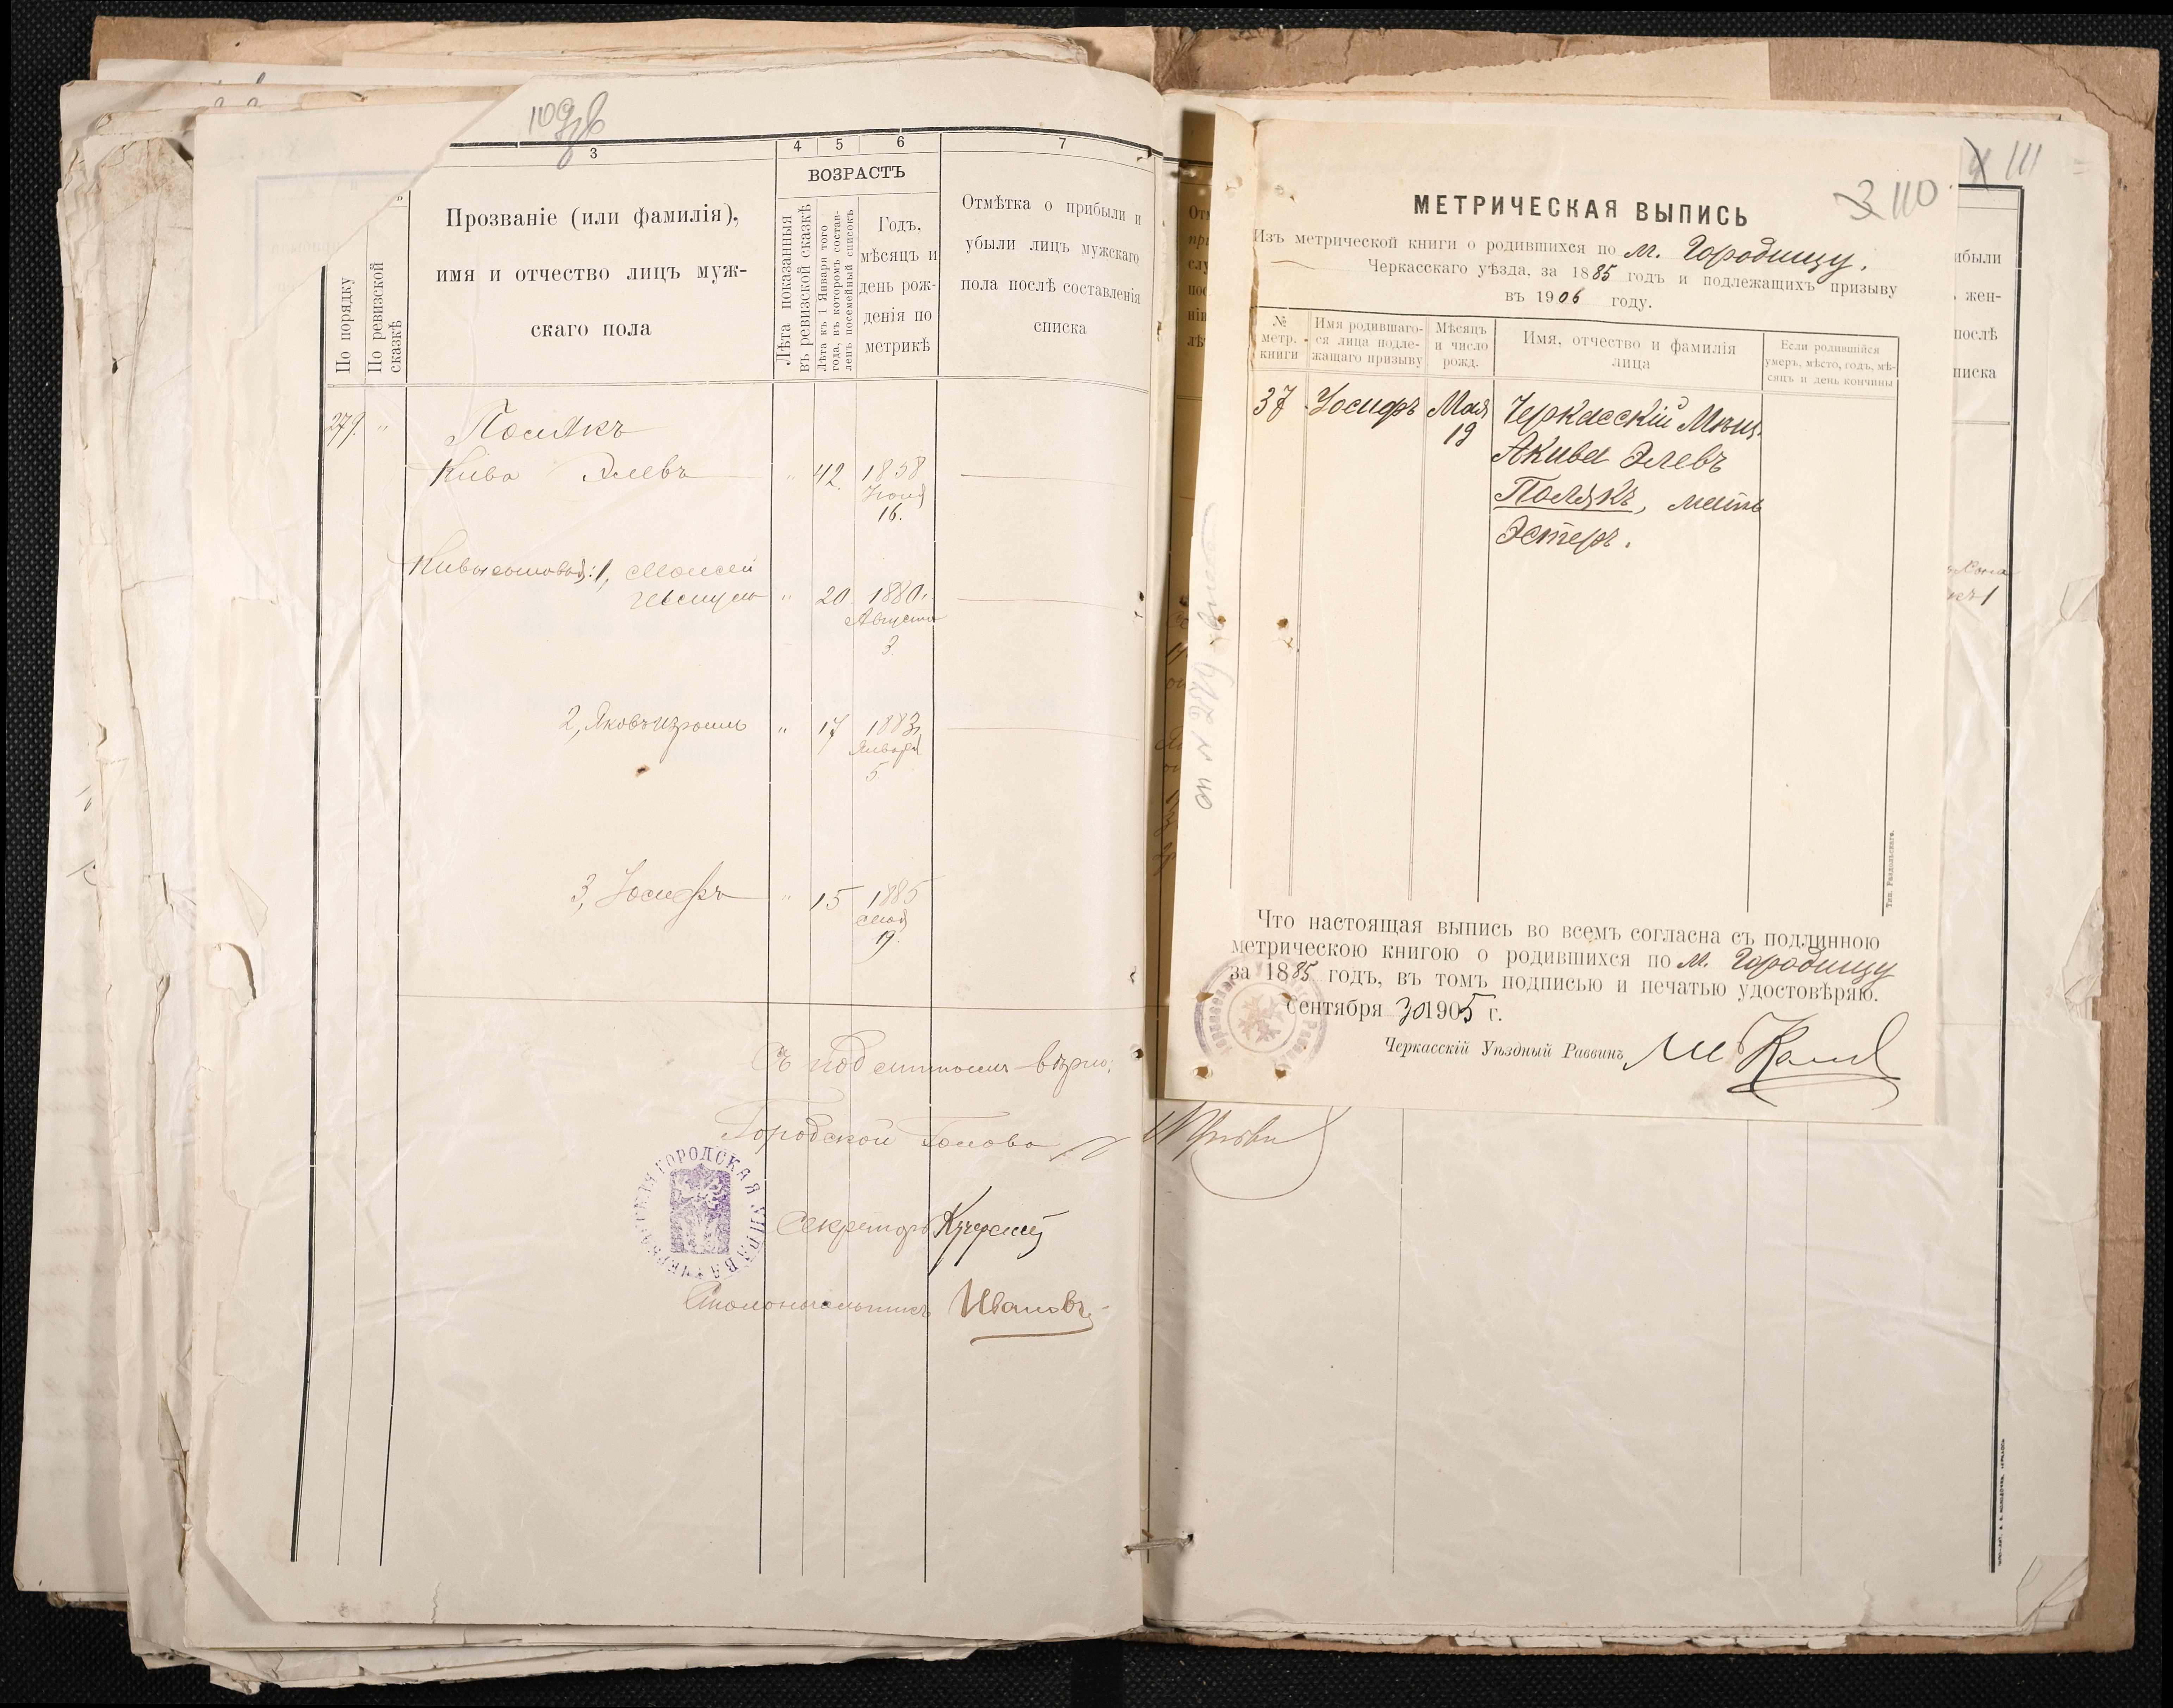 3
4
5
6
7
ВОЗРАСТЪ
По порядку
По ревизской сказкѣ
Прозваніе (или фамилія),
имя и отчество лицъ муж-
скаго пола
Лѣта показанныя
въ ревизской сказкѣ
Лѣта къ 1 Января того
года, въ которомъ состав-
ленъ посемейный списокъ
Годъ,
мѣсяцъ и
день рож-
денія по
метрикѣ
Отмѣтка о прибыли и
убыли лицъ мужскаго
пола послѣ составленія
списка
279. "
Полякъ
Кива Элевъ " 42. 1858
Іюня
16.
Кивы сыновья: 1, Моисей
" 20. 1880.
Августа
3.
2, Яковъ Израиль " 17 1883
Января
5
3, Іосифъ " 15 1885
Мая
19.
Съ подлиннымъ вѣрно:
Городской Голова
Секретарь
Столоначальникъ Ивановъ
ЧЕРКАССКАЯ ГОРОДСКАЯ УПРАВА
111
3 110
МЕТРИЧЕСКАЯ ВЫПИСЬ
Изъ метрической книги о родившихся по м. Городищу.
Черкасскаго уѣзда, за 1885 годъ и подлежащихъ призыву
въ 1906 году.
№
метр.
книги
Имя родившаго-
ся лица подле-
жащаго призыву
Мѣсяцъ
и число
рожд.
Имя, отчество и фамилія
лица
Если родившійся
умеръ, мѣсто, годъ, мѣ-
сяцъ и день кончины
37 Іосифъ Мая Черкасскій Мѣщ.
19
Акива Элевъ
Полякъ, мать
Эстеръ.
Что настоящая выпись во всемъ согласна съ подлинною
метрическою книгою о родившихся по м. Городищу
за 1885 годъ, въ томъ подписью и печатью удостовѣряю.
Сентября 30 1905 г.
Черкасскій Уѣздный Раввинъ
ибыли
жен-
послѣ
писка